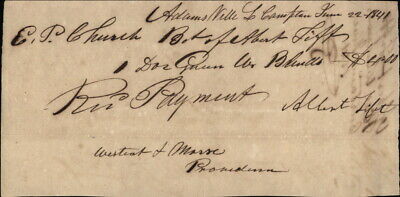 Adamsville L Compton June 22 1841
E. P. Church Bot of Albert Tift
1 Doz Green W Blinds $
Recd Payment
Albert Tift
Westcot & Morse
Providence